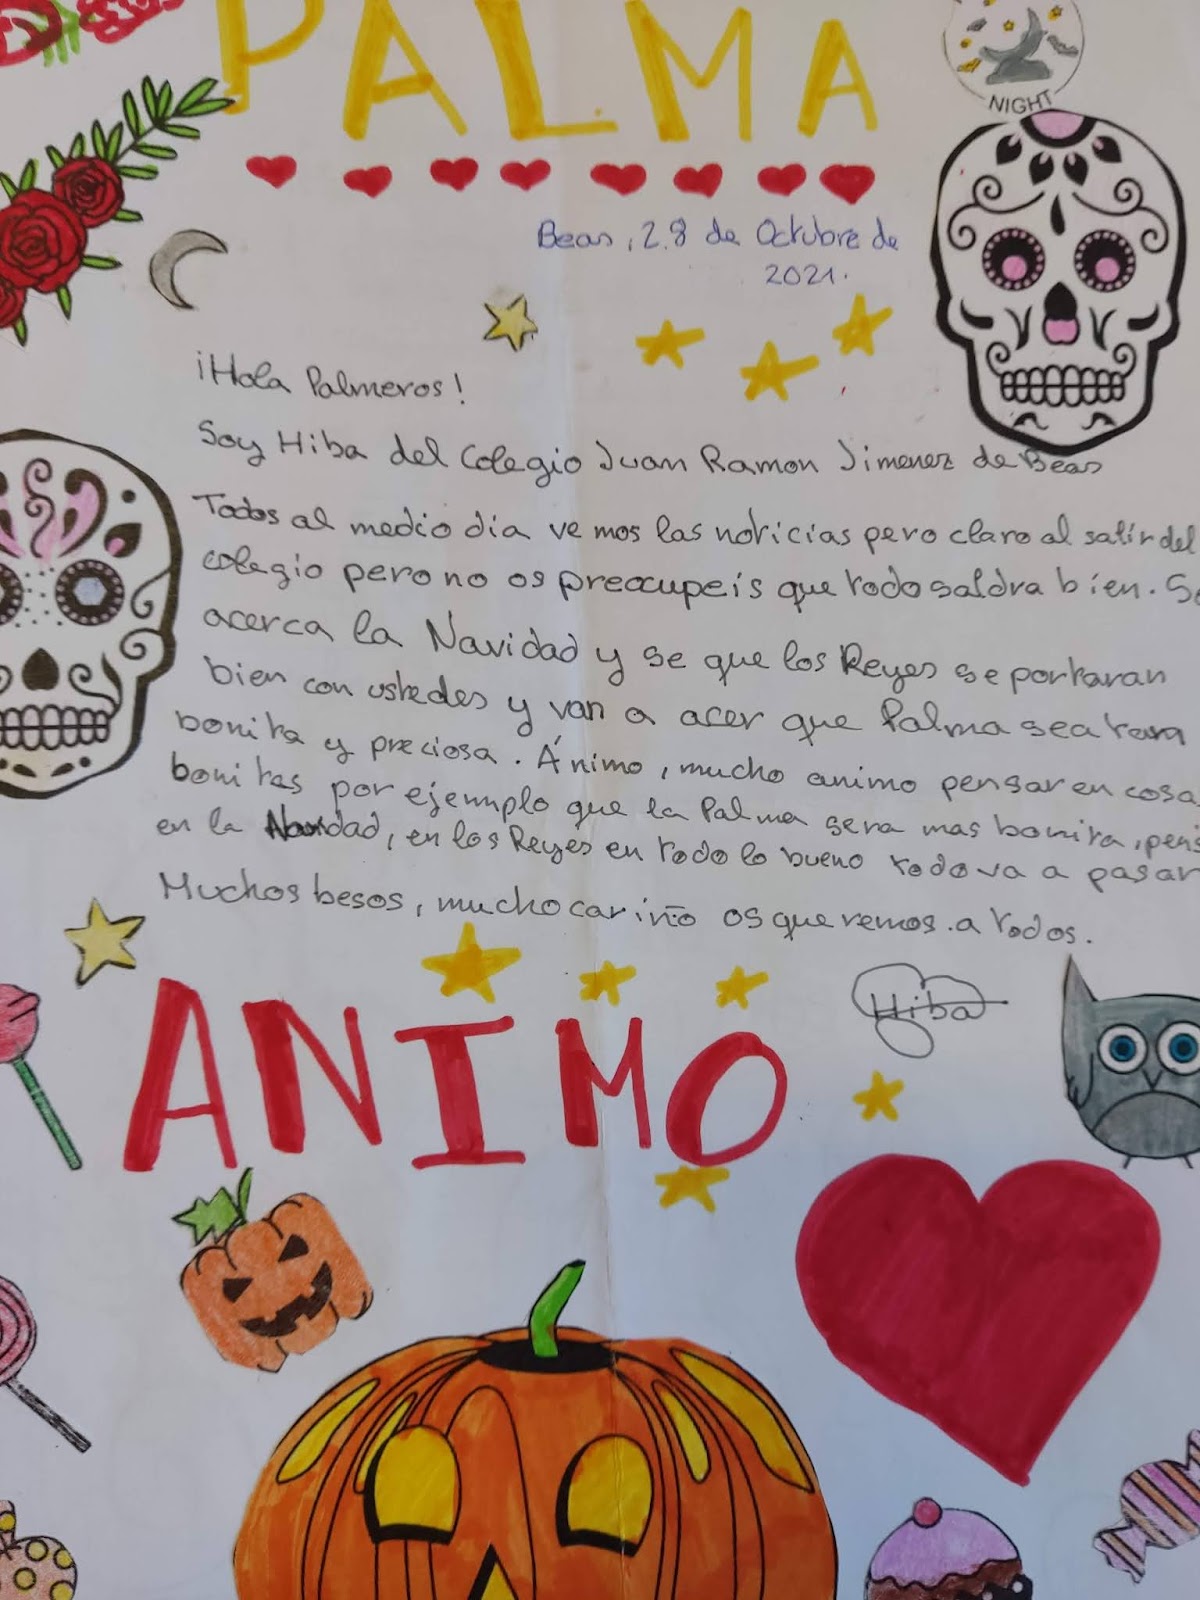 PALMA
NIGHT
Beas, 28 de Octubre de
2021.
¡Hola Palmeros!
Soy Hiba del Colegio Juan Ramon Jimenez de Beas
Todos al medio dia vemos las noticias pero claro al salir del
colegio pero no os preocupeis que todo saldra bien. Se
acerca la Navidad y se que los Reyes se portaran
bien con ustedes y van a acer que Palma sea tan
bonita y preciosa. Ánimo, mucho animo pensar en cosa
bonitas por ejemplo que la Palma sera mas bonita, pens
en la Navidad, en los Reyes en todo lo bueno todo va a pasar
Muchos besos, mucho cariño os queremos. a todos.
Hiba
ANIMO